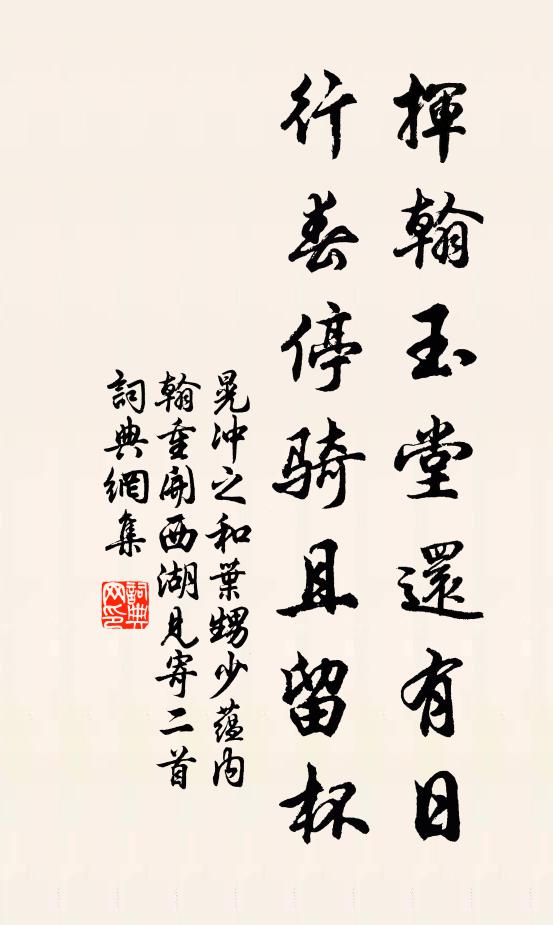 揮翰玉堂還有日
行春停騎且留杯
晁沖之和葉甥少蘊內
翰重開西湖見寄二首
詞典網集
詞典網印